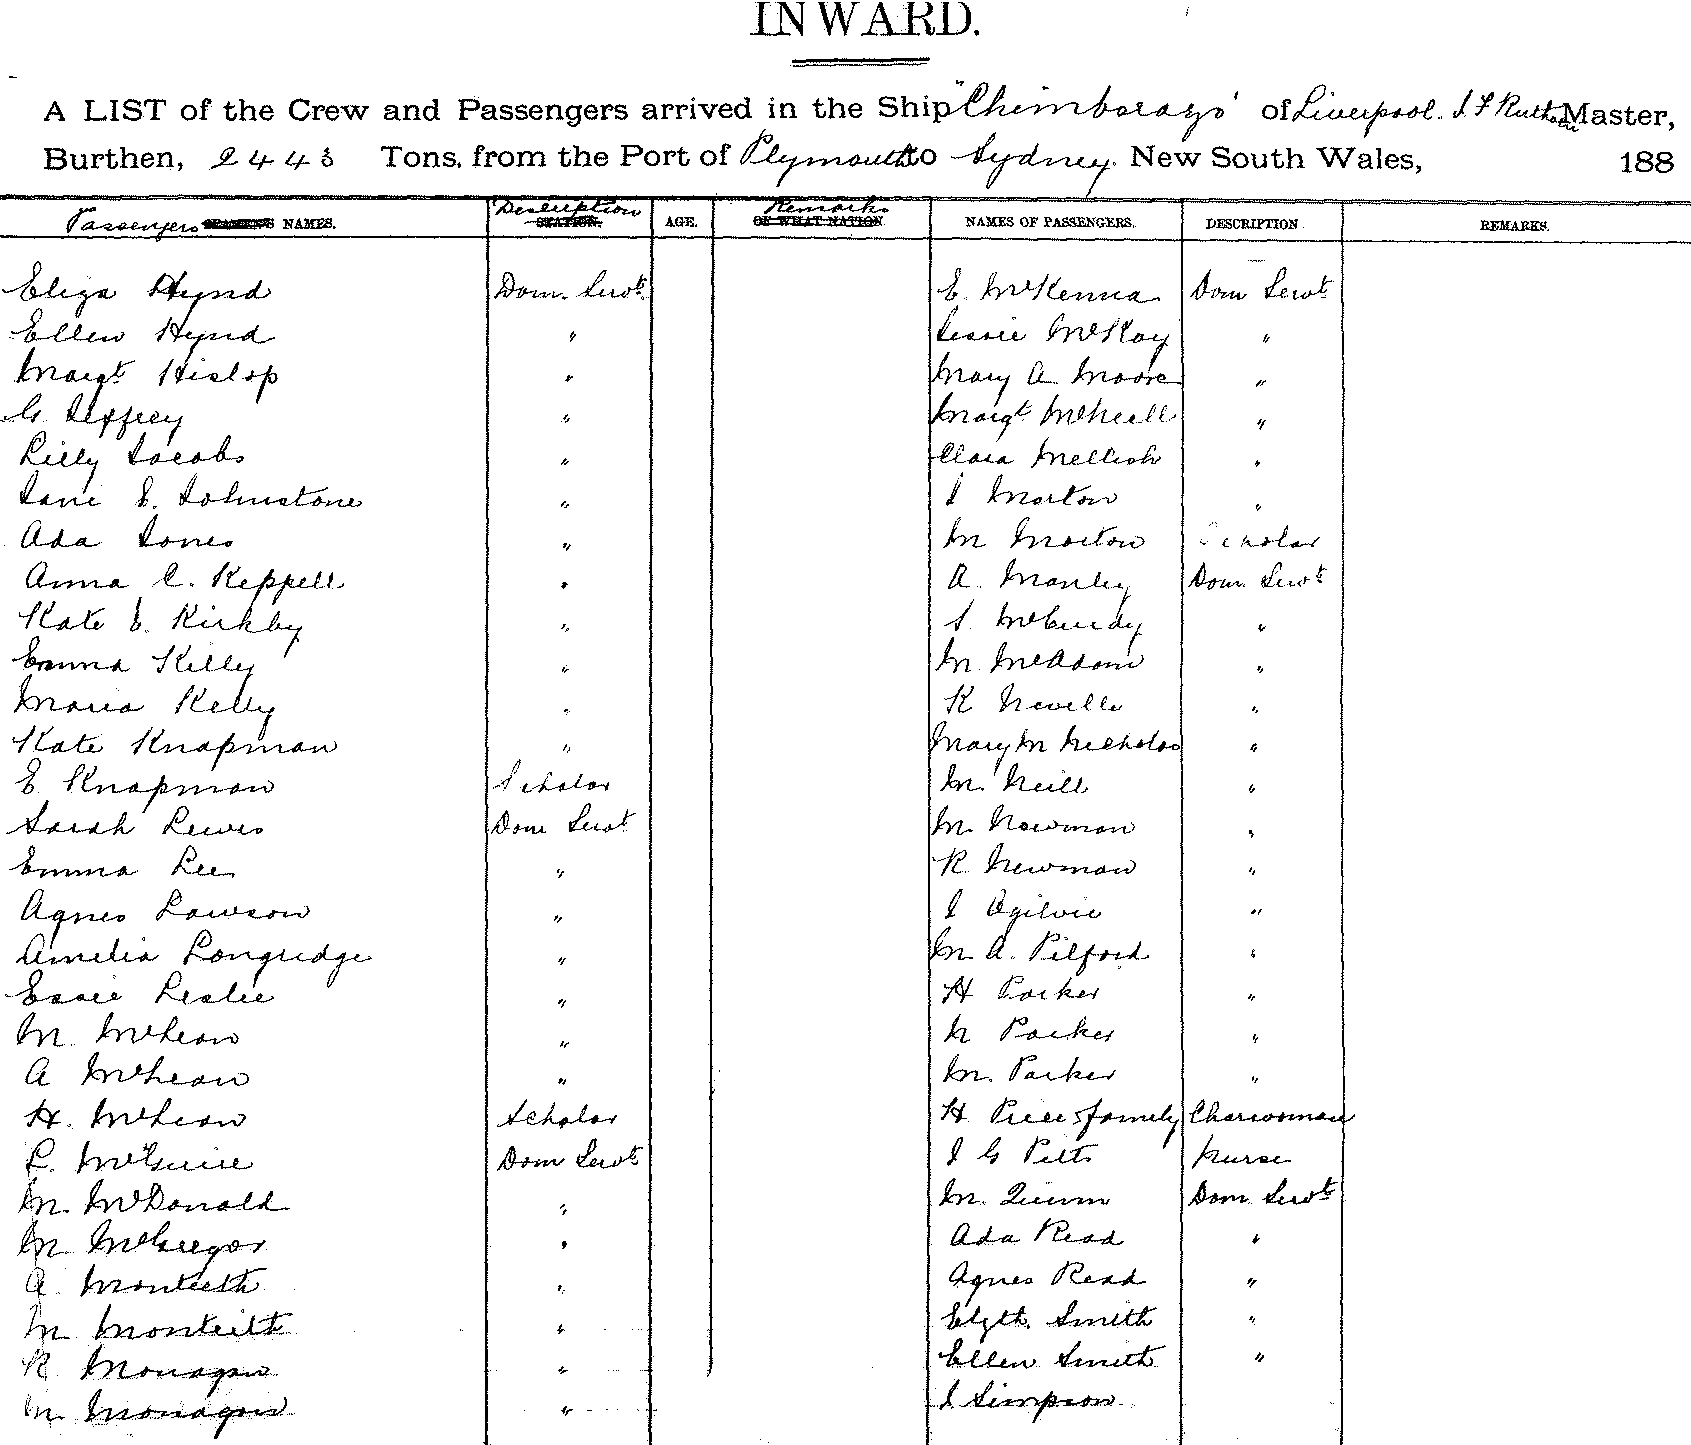 INWARD.
A LIST of the Crew and Passengers arrived in the Ship "Chimborazo" of Liverpool. J F Ruthven Master,
Burthen, 2443 Tons, from the Port of Plymouth to Sydney. New South Wales, 188
Passengers NAMES. Description STATION. AGE. Remarks OF WHAT NATION NAMES OF PASSENGERS. DESCRIPTION REMARKS.
Eliza Hynd Dom. Servt. E. McKenna Dom Servt
Ellen Hynd " Jessie McKay "
Margt. Hislop " Mary A Moore "
G. Jeffrey " Margt. McNeill "
Lilly Jacobs " Clara Mellish "
Jane E. Johnstone " J Morton "
Ada Jones " M Morton Scholar
Anna C. Keppell " A. Manley Dom. Servt
Kate E. Kirkby " S. McCurdy "
Emma Kelly " M McAdam "
Maria Kelly " K Neville "
Kate Knapman " Mary M Nicholas "
E. Knapman Scholar M. Neill "
Sarah Lewis Dom Servt M. Newman "
Emma Lee " R Newman "
Agnes Lawson " J Ogilvie "
Amelia Longridge " M A. Pilford "
Essie Leslie " H Parker "
M. McLean " N Parker "
A McLean " M. Parker "
H. McLean Scholar H Price & family Charwoman
L. McGuire Dom Servt J G Pitts Nurse
M. McDonald " M. Quinn Dom. Servt
M McGregor " Ada Read "
A. Monteith " Agnes Read "
M Monteith " Elzth. Smith "
R Monagan " Ellen Smith "
M. Monagan " J Simpson